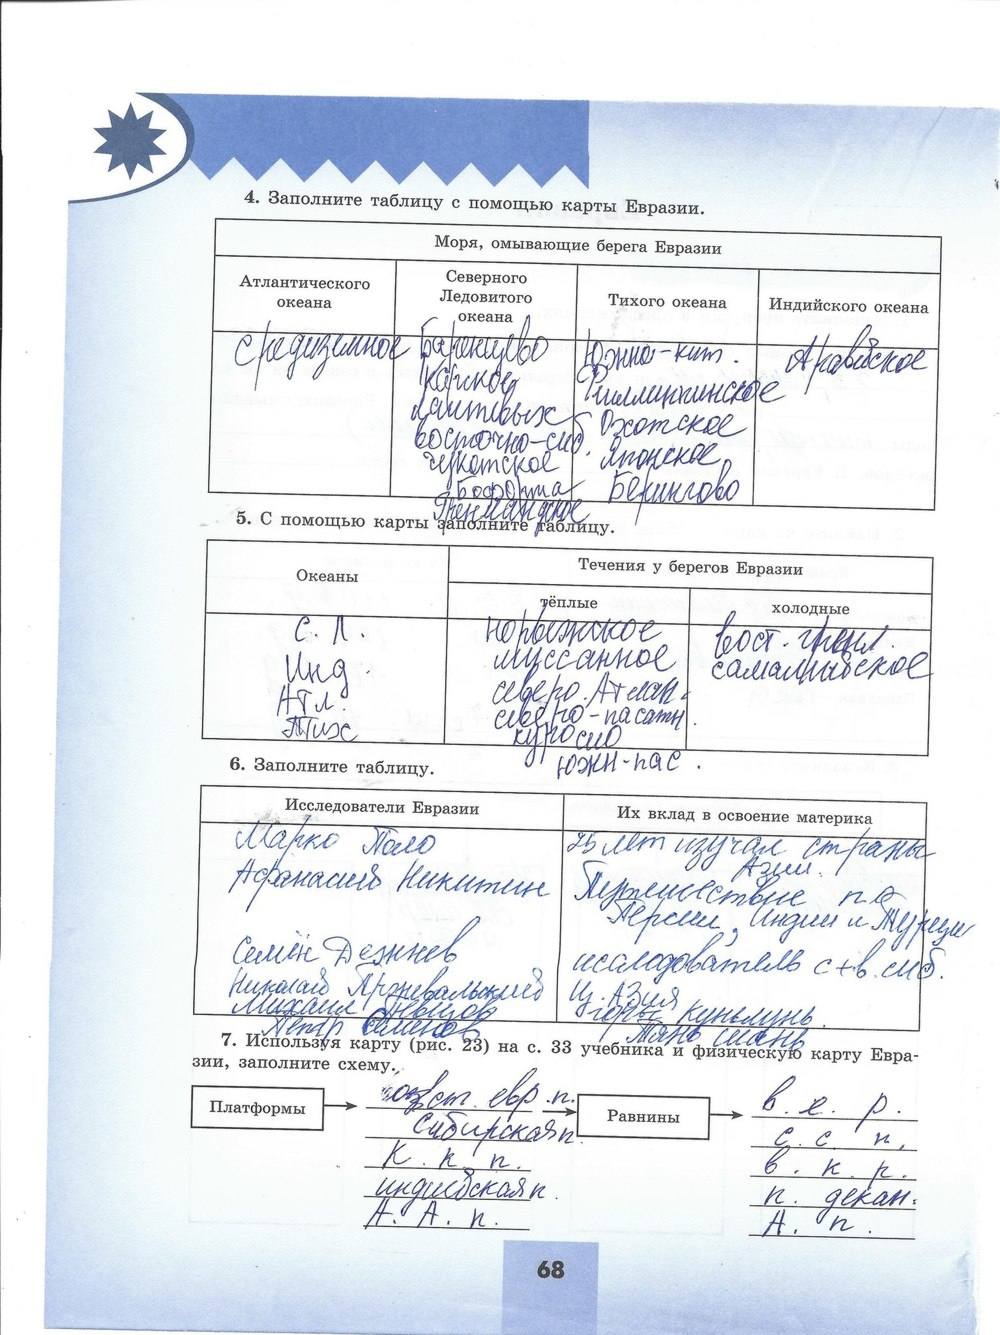 4. Заполните таблицу с помощью карты Евразии.
Моря, омывающие берега Евразии
Атлантического океана
Северного Ледовитого океана
Тихого океана
Индийского океана
средиземное
Баренцево
карское
лаптевых
восточно-сиб.
чукотское
Бофорта
Гренландское
Южно-кит.
Филлипинское
Охотское
Японское
Берингово
Аравийское
5. С помощью карты заполните таблицу.
Океаны
Течения у берегов Евразии
тёплые
холодные
С. Л.
Инд.
Атл.
Тих
норвежское
муссанное
северо. Атлан.
северо-пасатн.
куросио
южн-пас.
вост. гренл.
самалийское
6. Заполните таблицу.
Исследователи Евразии
Их вклад в освоение материка
Марко Поло
25 лет изучал страны
Азии.
Афанасий Никитин
Путешествие по
Персии, Индии и Турции
Семён Дежнев
исследователь с+в. сиб.
Николай Пржевальский
Ц. Азия
Михаил Певцов
горы Куньлунь.
Петр Семенов
Тянь шань
7. Используя карту (рис. 23) на с. 33 учебника и физическую карту Евра-
зии, заполните схему.
Платформы
вст. евр. п.
Сибирская п.
К. к. п.
индийская п.
А. А. п.
Равнины
в. е. р.
с. с п.
в. к. р.
п. декан.
А. п.
68